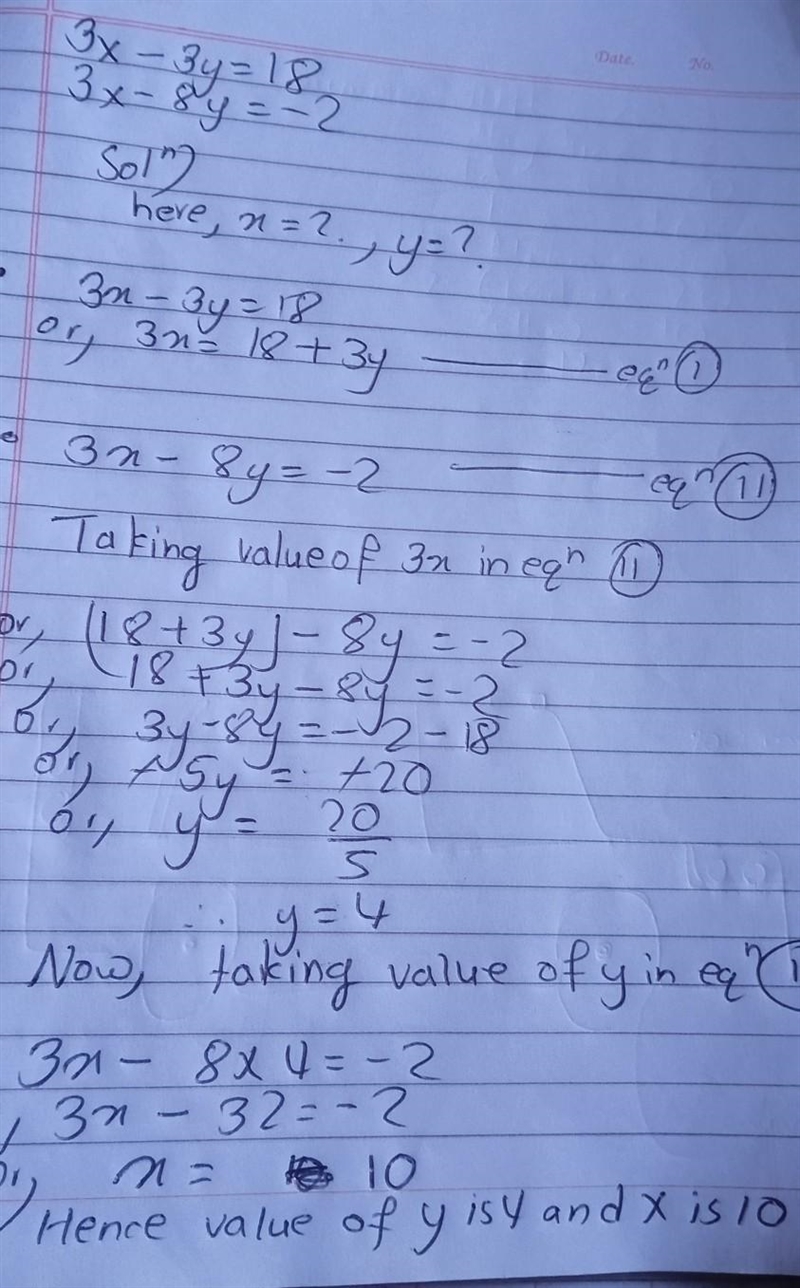 Date. No.
3x - 3y = 18
3x - 8y = -2
Solⁿ)
here, x = ?., y = ?.
3x - 3y = 18
or, 3x = 18 + 3y ——— eqⁿ (I)
3x - 8y = -2 ——— eqⁿ (II)
Taking value of 3x in eqⁿ (II)
or, (18 + 3y) - 8y = -2
or, 18 + 3y - 8y = -2
or, 3y - 8y = -2 - 18
or, +5y = +20
or, y = 20/5
∴ y = 4
Now, taking value of y in eqⁿ
3x - 8 x 4 = -2
, 3x - 32 = -2
or, x = 10
Hence value of y is 4 and x is 10